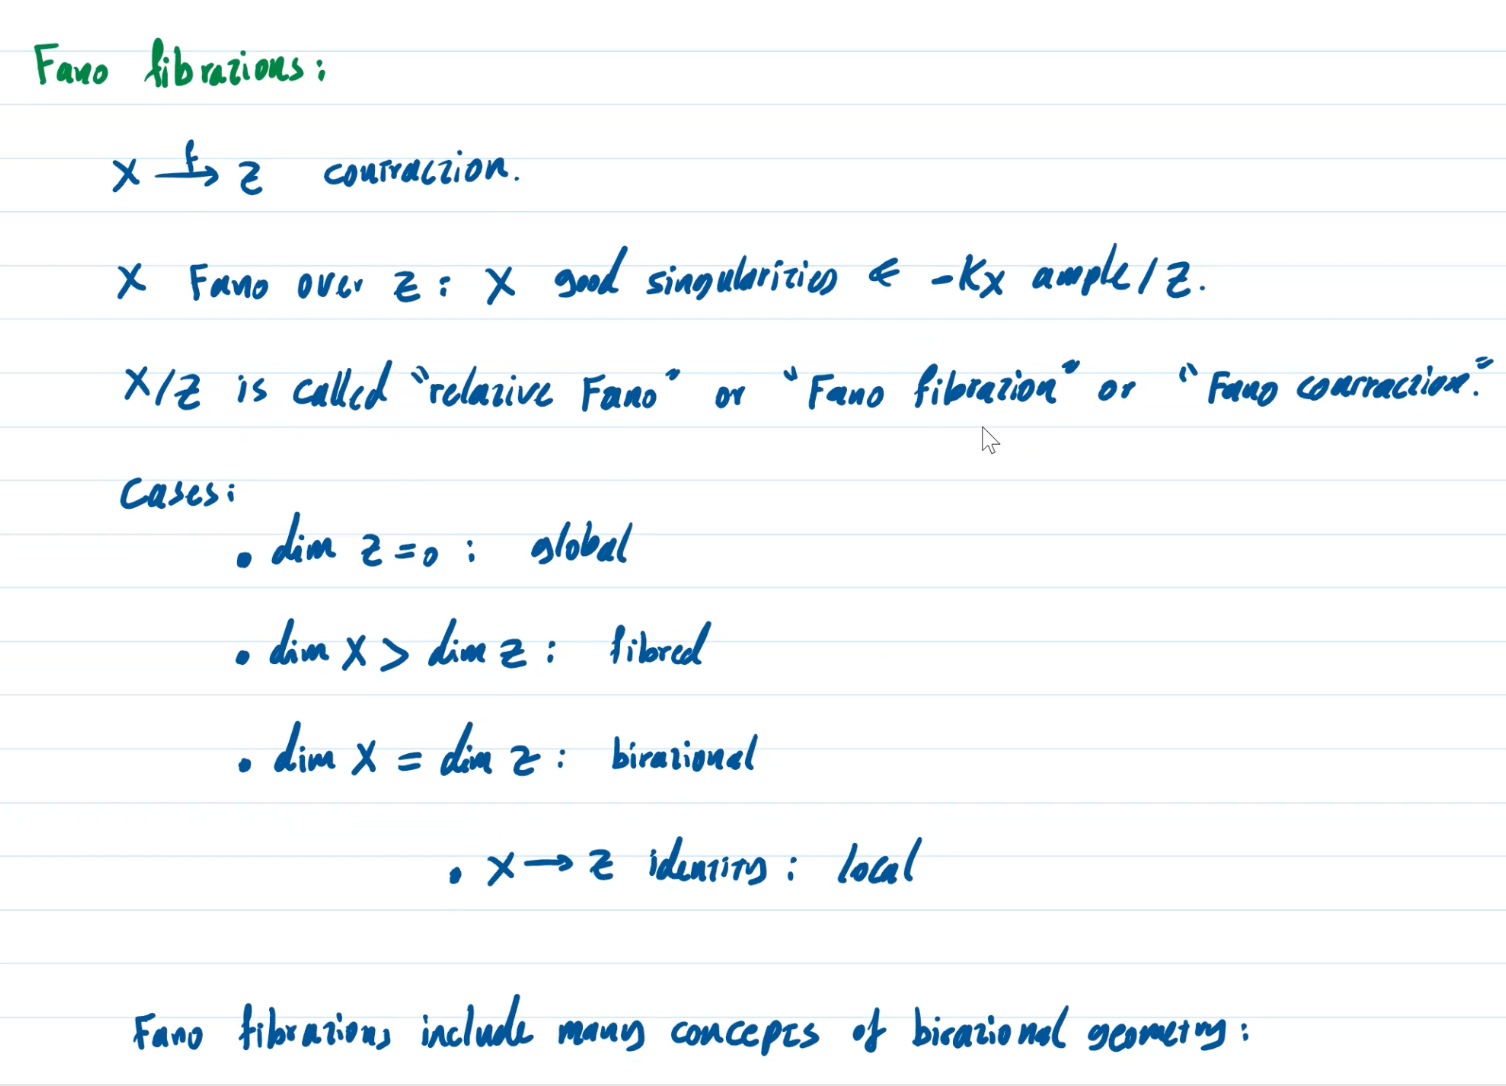 Fano fibrations:
X →f Z contraction.
X Fano over Z : X good singularities & -Kx ample/Z.
X/Z is called "relative Fano" or "Fano fibration" or "Fano contraction".
Cases:
• dim Z = 0 : global
• dim X > dim Z : fibred
• dim X = dim Z : birational
• X → Z identity : local
Fano fibrations include many concepts of birational geometry: